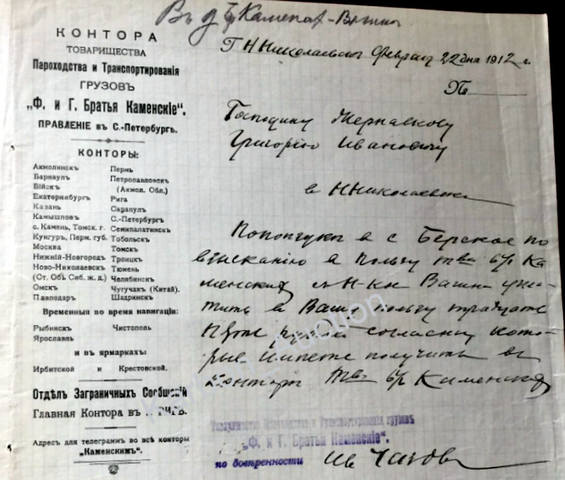 Въ д. Бр. Каменск
КОНТОРА
ТОВАРИЩЕСТВА
Пароходства и Транспортированія
ГРУЗОВЪ
„Ф. и Г. Братья Каменскіе“.
ПРАВЛЕНІЕ въ С.-Петербургѣ.
КОНТОРЫ:
Акмолинскъ Пермь
Барнаулъ Петропавловскъ
Бійскъ (Акмол. Обл.)
Екатеринбургъ Рига
Казань Сарапулъ
Камышловъ С.-Петербургъ
с. Камень, Томск. г. Семипалатинскъ
Кунгуръ, Перм. губ. Тобольскъ
Москва Томскъ
Нижній-Новгородъ Троицкъ
Ново-Николаевскъ Тюмень
(Ст. Об. Сиб. ж. д.) Челябинскъ
Омскъ Чугучакъ (Китай).
Павлодаръ Шадринскъ
Временныя во время навигаціи:
Рыбинскъ Чистополь
Ярославль
и въ ярмаркахъ:
Ирбитской и Крестовской.
Отдѣлъ Заграничныхъ Сообщеній
Главная Контора въ
Адресъ для телеграммъ во всѣ конторы
„Каменскимъ“.
Г Н Николаевскъ Февраля 22 дня 1912 г.
№
Господину
Григорію Ивановичу
в Н Николаевске
в с Берское по
взысканію в пользу тва бр Ка
менских Н-Ки Вами
в Вашу пользу тридцать
пять рублей согласны кото
рые имѣете получить в
конторе Тва бр Каменских
Товарищество Пароходства и Транспортированія грузовъ
„Ф. и Г. Братья Каменскіе“.
по довѣренности